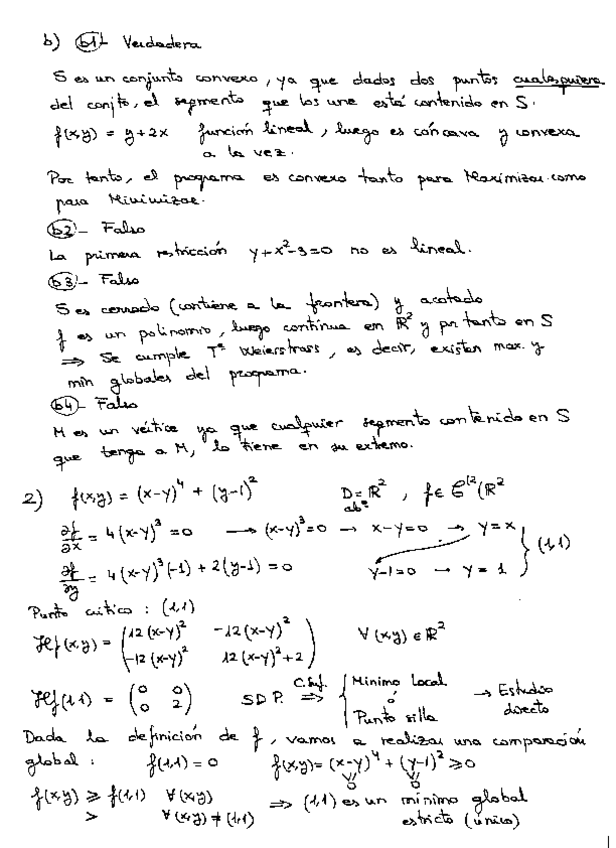 b) b1- Verdadera
S es un conjunto convexo, ya que dados dos puntos cualesquiera
del conjto, el segmento que los une está contenido en S.
f(x,y) = y+2x función lineal, luego es cóncava y convexa
a la vez.
Por tanto, el programa es convexo tanto para Maximizar como
para Minimizar.
b2- Falso
La primera restricción y+x²-3=0 no es lineal.
b3- Falso
S es cerrado (contiene a la frontera) y acotado
f es un polinomio, luego continua en ℝ² y por tanto en S
⇒ Se cumple Tª Weierstrass, es decir, existen max. y
min globales del programa.
b4- Falso
M es un vértice ya que cualquier segmento contenido en S
que tenga a M, lo tiene en su extremo.
2) f(x,y) = (x-y)⁴ + (y-1)² D = ℝ² , f ∈ C²(ℝ²
abº
∂f/∂x = 4(x-y)³ = 0 → (x-y)³=0 → x-y=0 → y=x
∂f/∂y = 4(x-y)³(-1) + 2(y-1) = 0 y-1=0 → y=1 } (1,1)
Punto crítico : (1,1)
Hf(x,y) = (12(x-y)² -12(x-y)² ∀(x,y) ∈ ℝ²
-12(x-y)² 12(x-y)²+2)
Hf(1,1) = (0 0 SDP. C.Suf. ⇒ { Mínimo Local → Estudio
0 2) ó directo
Punto silla
Dada la definición de f, vamos a realizar una comparación
global : f(1,1) = 0 f(x,y) = (x-y)⁴ + (y-1)² ≥ 0
≥0 ≥0
f(x,y) ≥ f(1,1) ∀(x,y) ⇒ (1,1) es un mínimo global
> ∀(x,y) ≠ (1,1) estricto (único)